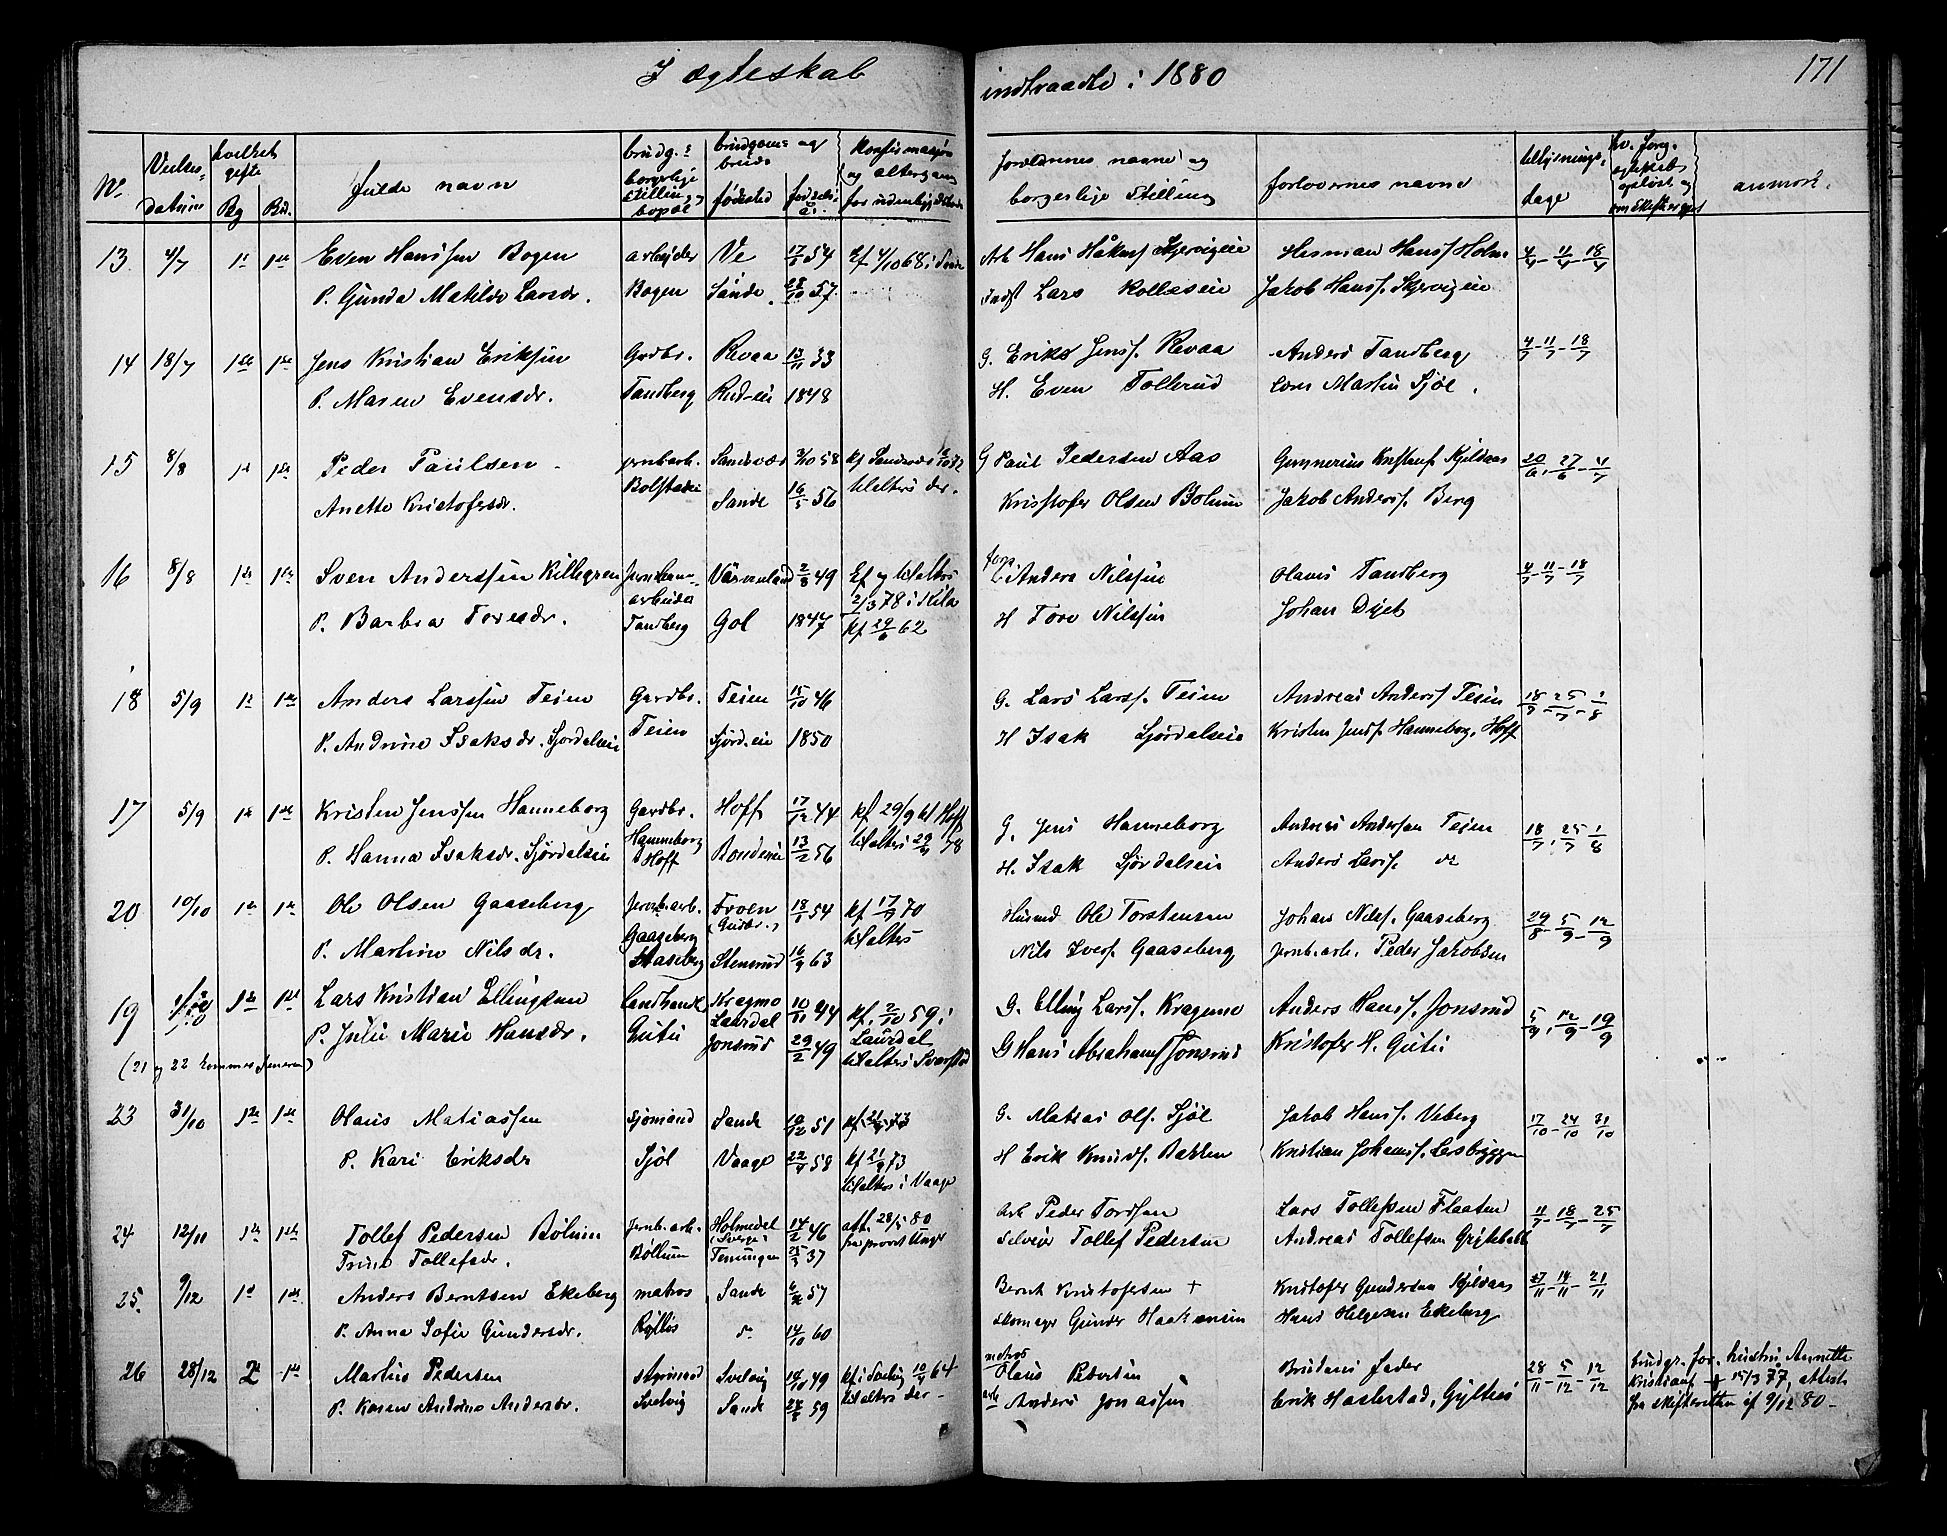 I ægteskab indtraadte i 1880 171
No Vielses- datum hvilket gifte Bg Bd. fulde navn brudg.s borgerlige stilling, bopæl brudgoms og bruds fødested fødselsår.
forældrenes navne og borgerlige stilling forlovernes navne tillysnings- dage anmærk.
13 4/7 1t 1ste Even Hanssen Bogen arbejder Ve 17/8 54 Kf 4/10 68 i Sande Arb Hans Håkens Skjervigeie Herman Hanss. Holm 4/7 - 11/7 - 18/7
P. Gunda Matilde Larsdr. Bogen Sande 28/10 57 Indst Lars Kolleseie Jakob Hanss. Skjervigeie
14 18/7 1ste 1ste Jens Kristian Eriksen Gardbr. Revaa 13/11 33 G. Eriks Jenss. Revaa Anders Tandberg 4/7 - 11/7 - 18/7
P. Maren Evensdr. Tandberg Rud-eie 1848 H. Even Tollerud Lars Martin Sjøl.
15 8/8 1ste 1ste Peder Paulsen jernb.arb. Sandsvær 2/10 58 kf Sandsvær G Paul Pedersen Aas Gunnerius Kristians. Kjeldaas 20/6 - 27/6 - 4/7
Anette Kristofersdr. Bolstadeie Sande 16/5 56 til alters der. Kristofer Olsen Bolum Jakob Anderss. Berg
16 8/8 1ste 1ste Sven Anderssen Killegren Jernban- arbeider Värmland 2/8 49 Kf og til alters 2/3 78 i Kila Anders Nilssen Olaus Tandberg 4/7 - 11/7 - 18/7
P. Barbra Toresdr. Tandberg Gol 1847 kf 29/6 62 H Tore Nilssen Johan
18 5/9 1t 1ste Anders Larssen Teien Gardbr. Teien 15/10 46 G. Lars Larss. Teien Andreas Anderss. Teien 18/7 - 25/7 - 1/8
P. Andrine Isaksdr. Sjørdalseie Teien Sjørd.eie 1850 H Isak Sjørdalseie Kristen Jenss. Hanneborg, Hoff
17 5/9 1ste 1ste Kristen Jenssen Hanneborg Gardbr. Hoff 17/12 44 kf 29/9 61 Hoff G. Jens Hanneborg Andreas Andersen Teien 18/7, 25/7 1/8
P. Hanna Isaksdr. Sjørdalseie Hanneborg Hoff Bondeeie 13/2 56 til alters 78 H. Isak Sjørdalseie Anders Larss. do
20 10/10 1ste 1ste Ole Olsen Gaaseberg Jernb.arb. Froen (Gudbr.) 18/1 54 kf 17/7 70 Husmd Ole Torstensen Johan Nilss. Gaaseberg 29/8 - 5/9 - 12/9
P. Martine Nilsdr. Gaaseberg Stensrud 16/9 63 til alters Nils Iverss. Gaaseberg Jernb.arb. Peder Jakobsen
19 1ste 1ste Lars Kristian Ellingsen Landhandl. Kragmo Laurdal 10/11 44 kf. 2/10 59 i Laurdal G. Elling Larss. Kragmo Anders Hanss. Jonsrud 5/9, 12/9 - 19/9
P. Julie Marie Hansdr. Gutu Jonsrud 29/2 49 til alters i Svarstad G Hans Abrahams. Jonsrud Kristofer H. Gutu
(21 og 22 kommer senere)
23 31/10 1ste 1ste Olaus Matiassen Sjømand Sande 10/12 51 kf. 73 G. Matias Ols. Sjøl Jakob Hanss. Veberg 17/10 - 24/10 31/10
P. Kari Eriksdr Sjøl Vaage 22/4 58 kf 21/9 73 til alters i Vaage H Erik Knuds. Bakken Kristian Johanss. Lersbryggen
24 12/11 1ste 1ste Tollef Pedersen Bolum Jernb.arb. Holmedal (Sverge) 14/2 46 att. 28/5 80 fra provst Unger Arb Peder Tordsen Lars Tollefsen Flaaten 11/7 - 18/7 - 25/7
Trine Tollefsdr. Bøllum 25/3 37 Selveier Tollef Pedersen Andreas Tollefsen
25. 9/12 1t 1ste Anders Berntsen Ekeberg matros Sande 57 Bernt Kristofersen + Kristofer Gundersen Kjeldaas 14/11 - 21/11
P. Anna Sofie Gundersdr. do 14/10 60 skomager Gunder Haakensen Hans Helgesen Ekeberg
26 28/12 2t 1ste Martin Pedersen styrmand Svelvig 10/10 49 kf i Svelvig 64 matros Olaus Petersen Brudens fader 28/11 - 5/12 - 12/12 brudgr. for. hustru Annette Kristians. † 15/3 77, attest fra skifteretten af 9/12 80 -
P. Karen Andrine Andersdr. Svelvig Sande 59 til alters der - arb Anders Jonassen Erik Hasterstad,